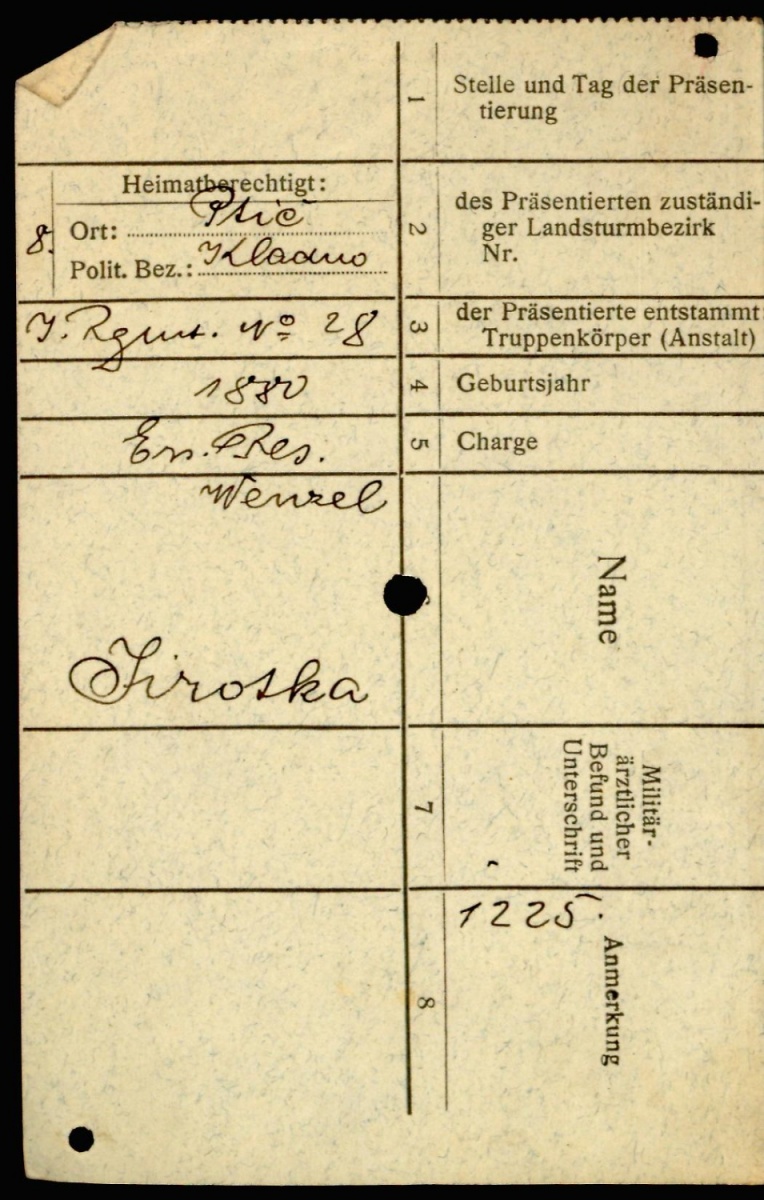 1
Stelle und Tag der Präsen-
tierung
Heimatberechtigt:
8.
Ort: Ptič
Polit. Bez.: Kladno
2
des Präsentierten zuständi-
ger Landsturmbezirk
Nr.
J. Rgmt. No 28
3
der Präsentierte entstammt
Truppenkörper (Anstalt)
1880
4
Geburtsjahr
Ers. Res.
5
Charge
Wenzel
Jirotka
Name
7
Militär-
ärztlicher
Befund und
Unterschrift
1225.
8
Anmerkung